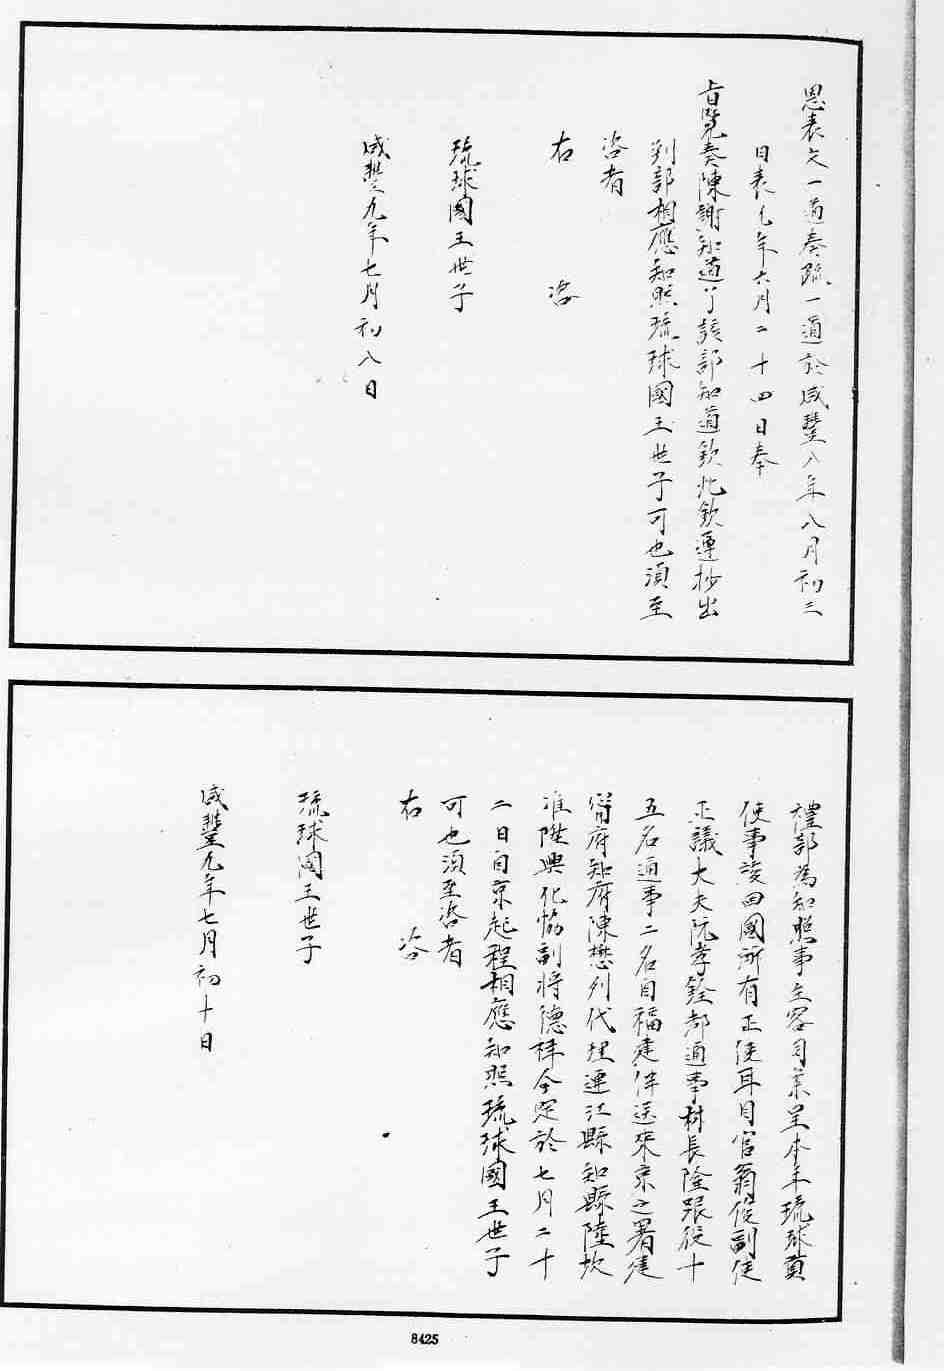 恩表文一道奏疏一道於咸豐八年八月初三
日表九年六月二十四日奉
旨覽奏陳謝知道了該部知道欽此欽遵抄出
到部相應知照琉球國王世子可也須至
咨者
右咨
琉球國王世子
咸豐九年七月初八日
禮部為知照事主客司案呈本年琉球貢
使事竣回國所有正使耳目官翁俊副使
正議大夫阮孝銓都通事林長隆跟役十
五名通事二名自福建伴送來京之署建
甯府知府陳懋列代理連江縣知縣陸坎
准陞興化協副將德祥今定於七月二十
二日自京起程相應知照琉球國王世子
可也須至咨者
右咨
琉球國王世子
咸豐九年七月初十日
8425